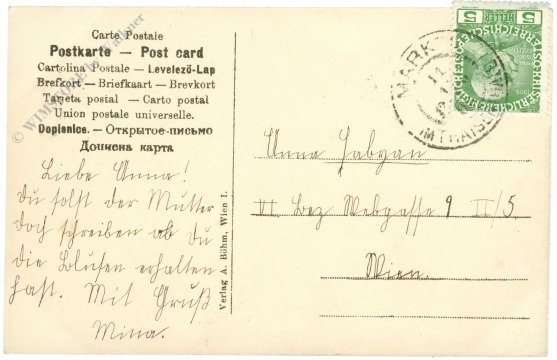 Carte Postale
Postkarte — Post card
Cartolina Postale — Levelező-Lap
Brefkort — Briefkaart — Brevkort
Tarjeta postal — Carto postal
Union postale universelle.
Doplenice. — Открытое-письмо
Дописна карта
Liebe Anna!
Du solst der Mutter
doch schreiben ob du
die Blusen erhalten
hast. Mit Gruß
Mina.
Verlag A. Böhm, Wien I.
Anna Fabyan
VI Bez Webgasse 9 II/5
Wien.
5 5
HELLER
MARK
MTHAISL
© WIMMORE by